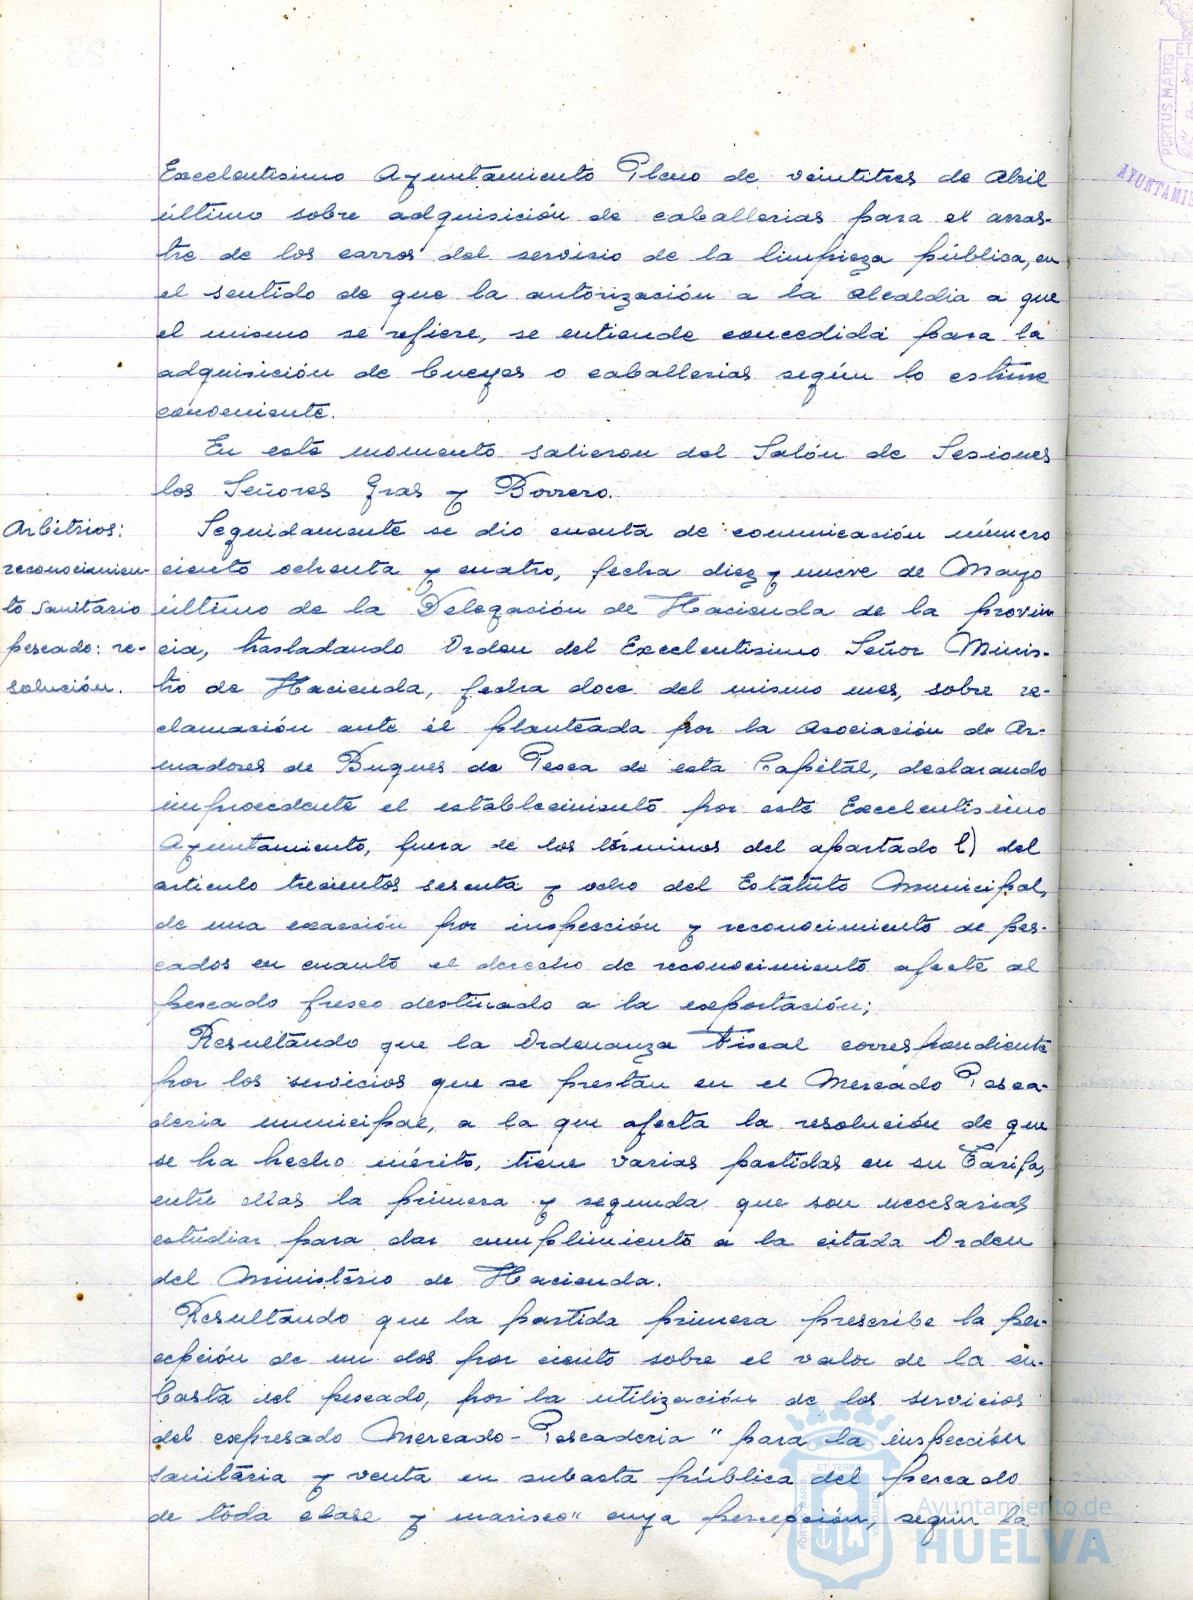 Excelentisimo Ayuntamiento Pleno de veintitres de Abril
último sobre adquisición de caballerias para el arras-
tre de los carros del servicio de la limpieza pública, en
el sentido de que la autorización a la Alcaldia a que
el mismo se refiere, se entiende concedida para la
adquisición de bueyes o caballerias según lo estime
conveniente.
En este momento salieron del Salón de Sesiones
los Señores Gras y Borrero.
Arbitrios:
reconocimien-
to sanitario
pescado: re-
solución.
Seguidamente se dio cuenta de comunicación número
ciento ochenta y cuatro, fecha diez y nueve de Mayo
último de la Delegación de Hacienda de la provin
cia, trasladando Orden del Excelentisimo Señor Minis-
tro de Hacienda, fecha doce del mismo mes, sobre re-
clamación ante él planteada por la Asociación de Ar-
madores de Buques de Pesca de esta Capital, declarando
improcedente el establecimiento por este Excelentisimo
Ayuntamiento, fuera de los términos del apartado l) del
articulo trecientos sesenta y ocho del Estatuto Municipal,
de una exacción por inspección y reconocimiento de pes-
cados en cuanto el derecho de reconocimiento afecte al
pescado fresco destinado a la exportación;
Resultando que la Ordenanza Fiscal correspondiente
por los servicios que se prestan en el Mercado Pesca-
deria municipal, a la que afecta la resolución de que
se ha hecho mérito, tiene varias partidas en su Tarifa,
entre ellas la primera y segunda que son necesarias
estudiar para dar cumplimiento a la citada Orden
del Ministerio de Hacienda.
Resultando que la partida primera prescribe la per-
cepción de un dos por ciento sobre el valor de la su-
basta del pescado, por la utilización de los servicios
del expresado Mercado-Pescaderia "para la inspección
sanitaria y venta en subasta pública del pescado
de toda clase y marisco" cuya percepción, según la
PORTUS MARIS
ET
AYUNTAMIE
ET TERRÆ
Ayuntamiento de
HUELVA